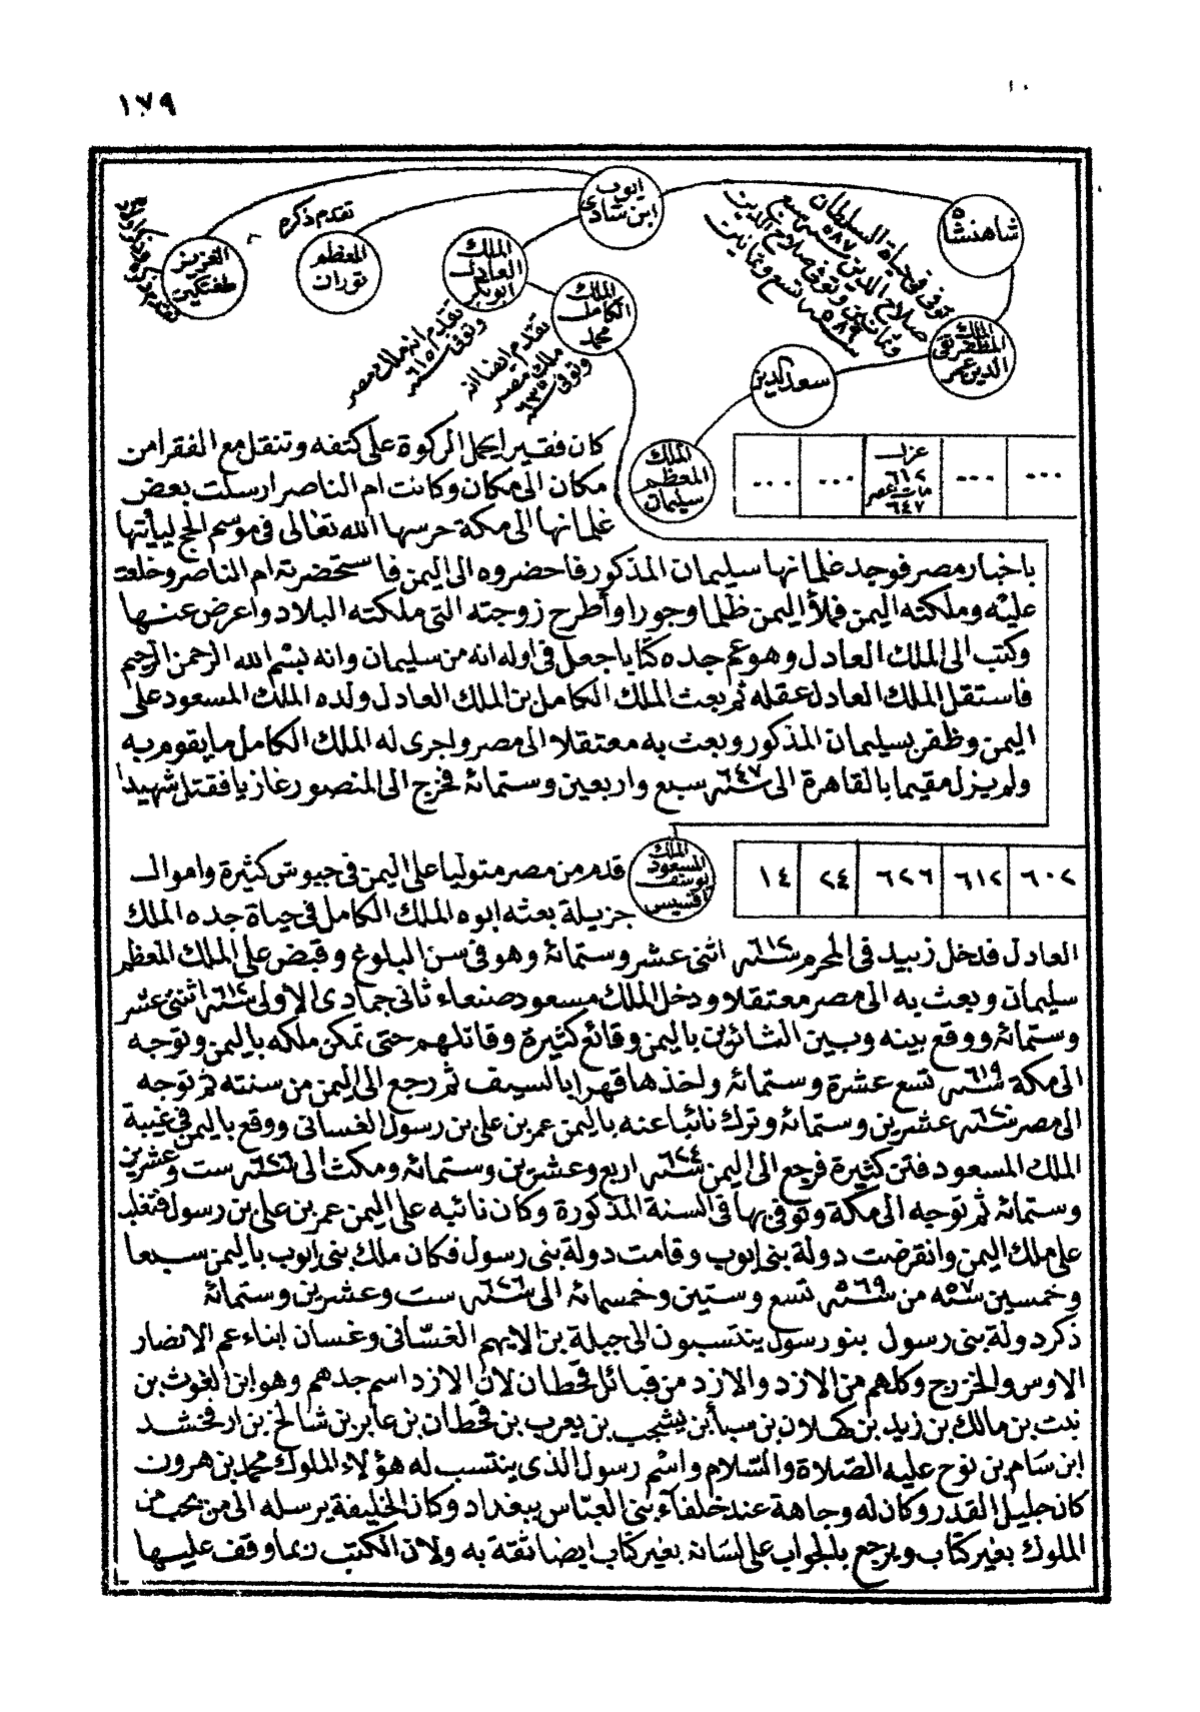 ١٧٩
ايوب
ابن شادى
شاهنشاه
توفى فى حياة السلطان
صلاح الدين سنة ٥٨٧ سبع
وثمانين وتوفى صلاح الدين
سنة ٥٨٩ تسع وثمانيت
الملك
المظفر تقى
الدين عمر
سعد الدين
الملك
المعظم
سليمان
الملك
العادل
ابوبكر
تقدم انه ملك مصر
وتوفى سنة ٦١٥
الملك
الكامل
محمد
تقدم ايضا انه
ملك مصر
وتوفى سنة ٦٣٥
المعظم
تورات
تقدم ذكره
العزيز
طغتكين
... | ... | عزل ٦١٢ مات بمصر ٦٤٧ | ... | ...
كان فقيرا يحمل الركوة على كتفه وتنقل مع الفقرا من
مكان الى مكان وكانت ام الناصر ارسلت بعض
غلمانها الى مكة حرسها الله تعالى فى موسم الحج ليأتها
باخبار مصر فوجد غلمانها سليمان المذكور فاحضروه الى اليمن فاستحضرته ام الناصر وخلعت
عليه وملكته اليمن فملأ اليمن ظلما وجورا واطرح زوجته التى ملكته البلاد واعرض عنها
وكتب الى الملك العادل وهو عم جده كتابا جعل فى اوله انه من سليمان وانه بسم الله الرحمن الرحيم
فاستقل الملك العادل عقله ثم بعث الملك الكامل بن الملك العادل ولده الملك المسعود على
اليمن وظفر بسليمان المذكور وبعث به معتقلا الى مصر واجرى له الملك الكامل ما يقوم به
ولم يزل مقيما بالقاهرة الى سنة ٦٤٧ سبع واربعين وستمائة فخرج الى المنصور غازيا فقتل شهيدا
٦٠٢ | ٦١٢ | ٦٢٦ | ٢٤ | ١٤
الملك
المسعود
يوسف
اقسيس
قدم من مصر متوليا على اليمن فى جيوش كثيرة واموال
جزيلة بعثه ابوه الملك الكامل فى حياة جده الملك
العادل فدخل زبيد فى المحرم سنة ٦١٢ اثنى عشر وستمائة وهو فى سن البلوغ وقبض على الملك المعظم
سليمان وبعث به الى مصر معتقلا ودخل الملك مسعود صنعاء ثانى جمادى الاولى سنة ٦١٢ اثنتى عشر
وستمائة ووقع بينه وبين الثائرين باليمن وقائع كثيرة وقاتلهم حتى تمكن ملكه باليمن وتوجه
الى مكة سنة ٦١٩ تسع عشرة وستمائة واخذها قهرا بالسيف ثم رجع الى اليمن من سنته ثم توجه
الى مصر سنة ٦٢٠ عشرين وستمائة وترك نائبا عنه باليمن عمر بن على بن رسول الغسانى ووقع باليمن فى غيبة
الملك المسعود فتن كثيرة فرجع الى اليمن سنة ٦٢٤ اربع وعشرين وستمائة ومكث الى سنة ٦٢٦ ست وعشرين
وستمائة ثم توجه الى مكة وتوفى بها فى السنة المذكورة وكان نائبه على اليمن عمر بن على بن رسول فتغلب
على ملك اليمن وانقرضت دولة بنى ايوب وقامت دولة بنى رسول فكان ملك بنى ايوب باليمن سبعا
وخمسين سنة ٥٧ من سنة ٥٦٩ تسع وستين وخمسمائة الى سنة ٦٢٦ ست وعشرين وستمائة
ذكر دولة بنى رسول بنو رسول ينتسبون الى جبلة بن الايهم الغسّانى وغسان ابناء عم الانصار
الاوس والخزرج وكلهم من الازد والازد من قبائل قحطان لان الازد اسم جدهم وهو ابن الغوث بن
نبت بن مالك بن زيد بن كهلان بن سبأ بن يشجب بن يعرب بن قحطان بن عابر بن شالخ بن ارفخشد
ابن سام بن نوح عليه الصّلاة والسّلام واسْم رسول الذى ينتسب له هؤلاء الملوك محمد بن هرون
كان جليل القدر وكان له وجاهة عند خلفاء بنى العبّاس ببغداد وكان الخليفة يرسله الى من يحب من
الملوك بغير كتاب ويرجع بالجواب على لسانه بغير كتاب ايضا ثقة به ولان الكتب ربما وقف عليها